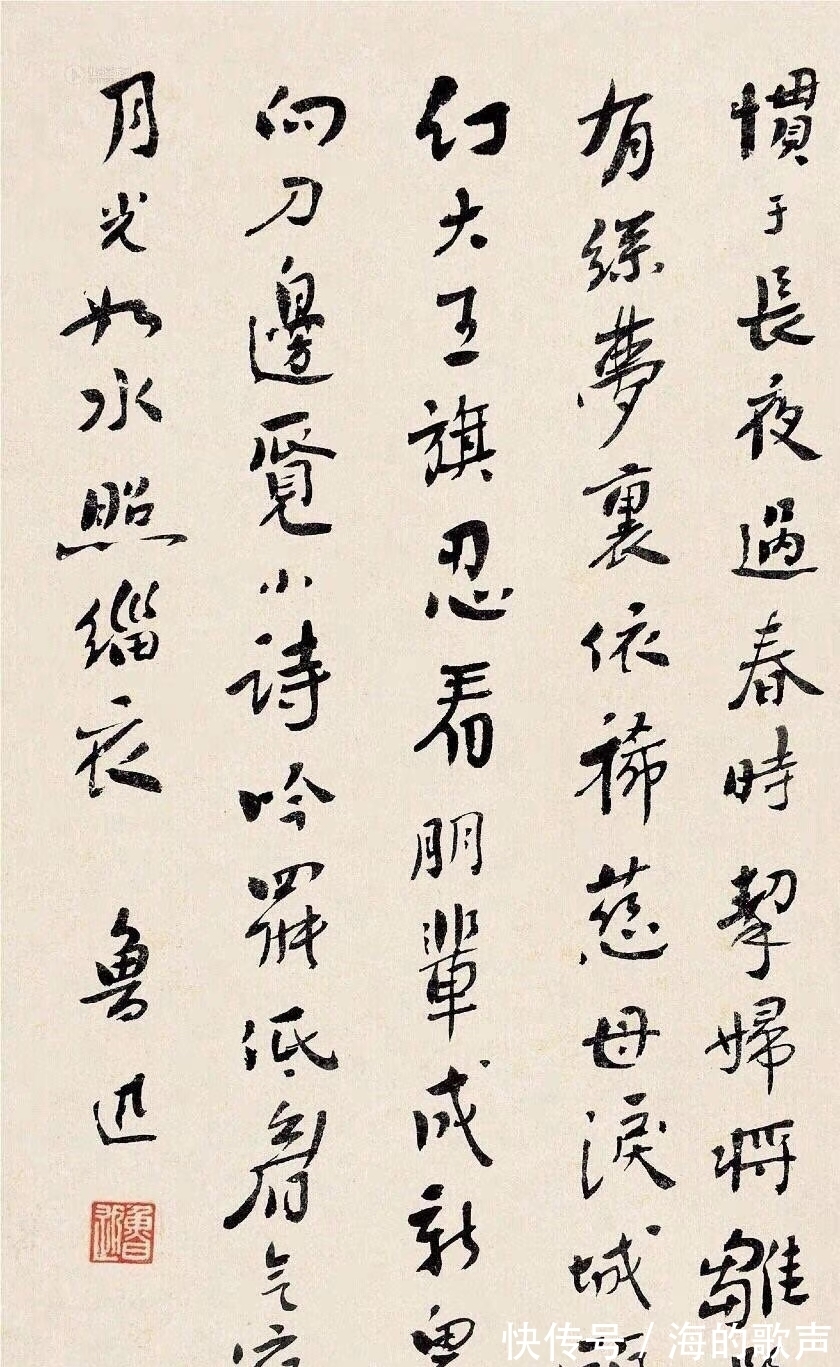 慣于長夜過春時挈婦將雛
有絲夢裏依稀慈母淚城
幻大王旗忍看朋輩成新鬼
向刀邊覓小詩吟罷低眉无
月光如水照緇衣 魯迅
魯迅
快传号 / 海的歌声